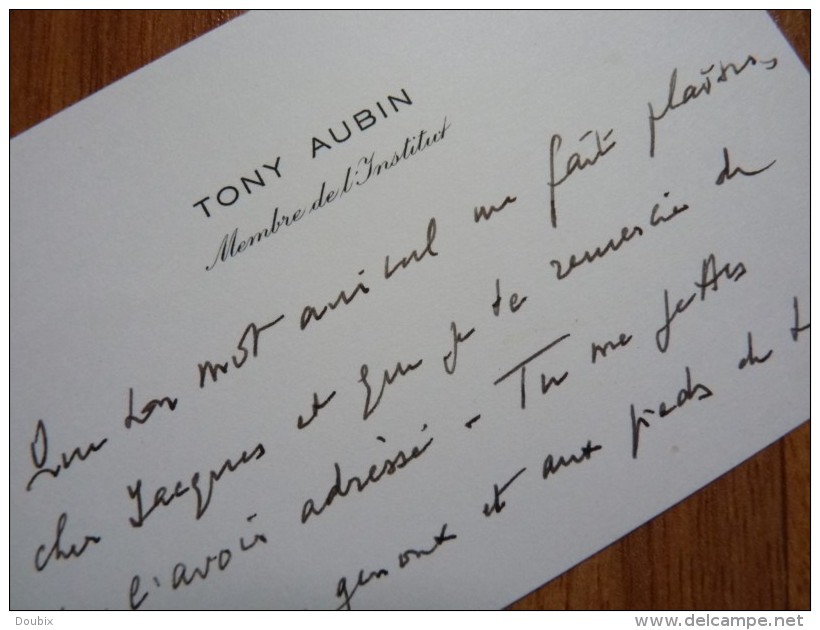 TONY AUBIN
Membre de l'Institut
Que ton mot amical me fait plaisir,
cher Jacques et que je te remercie de
l'avoir adressé - Tu me jettes
genoux et aux pieds de
Doubix
www.delcampe.net